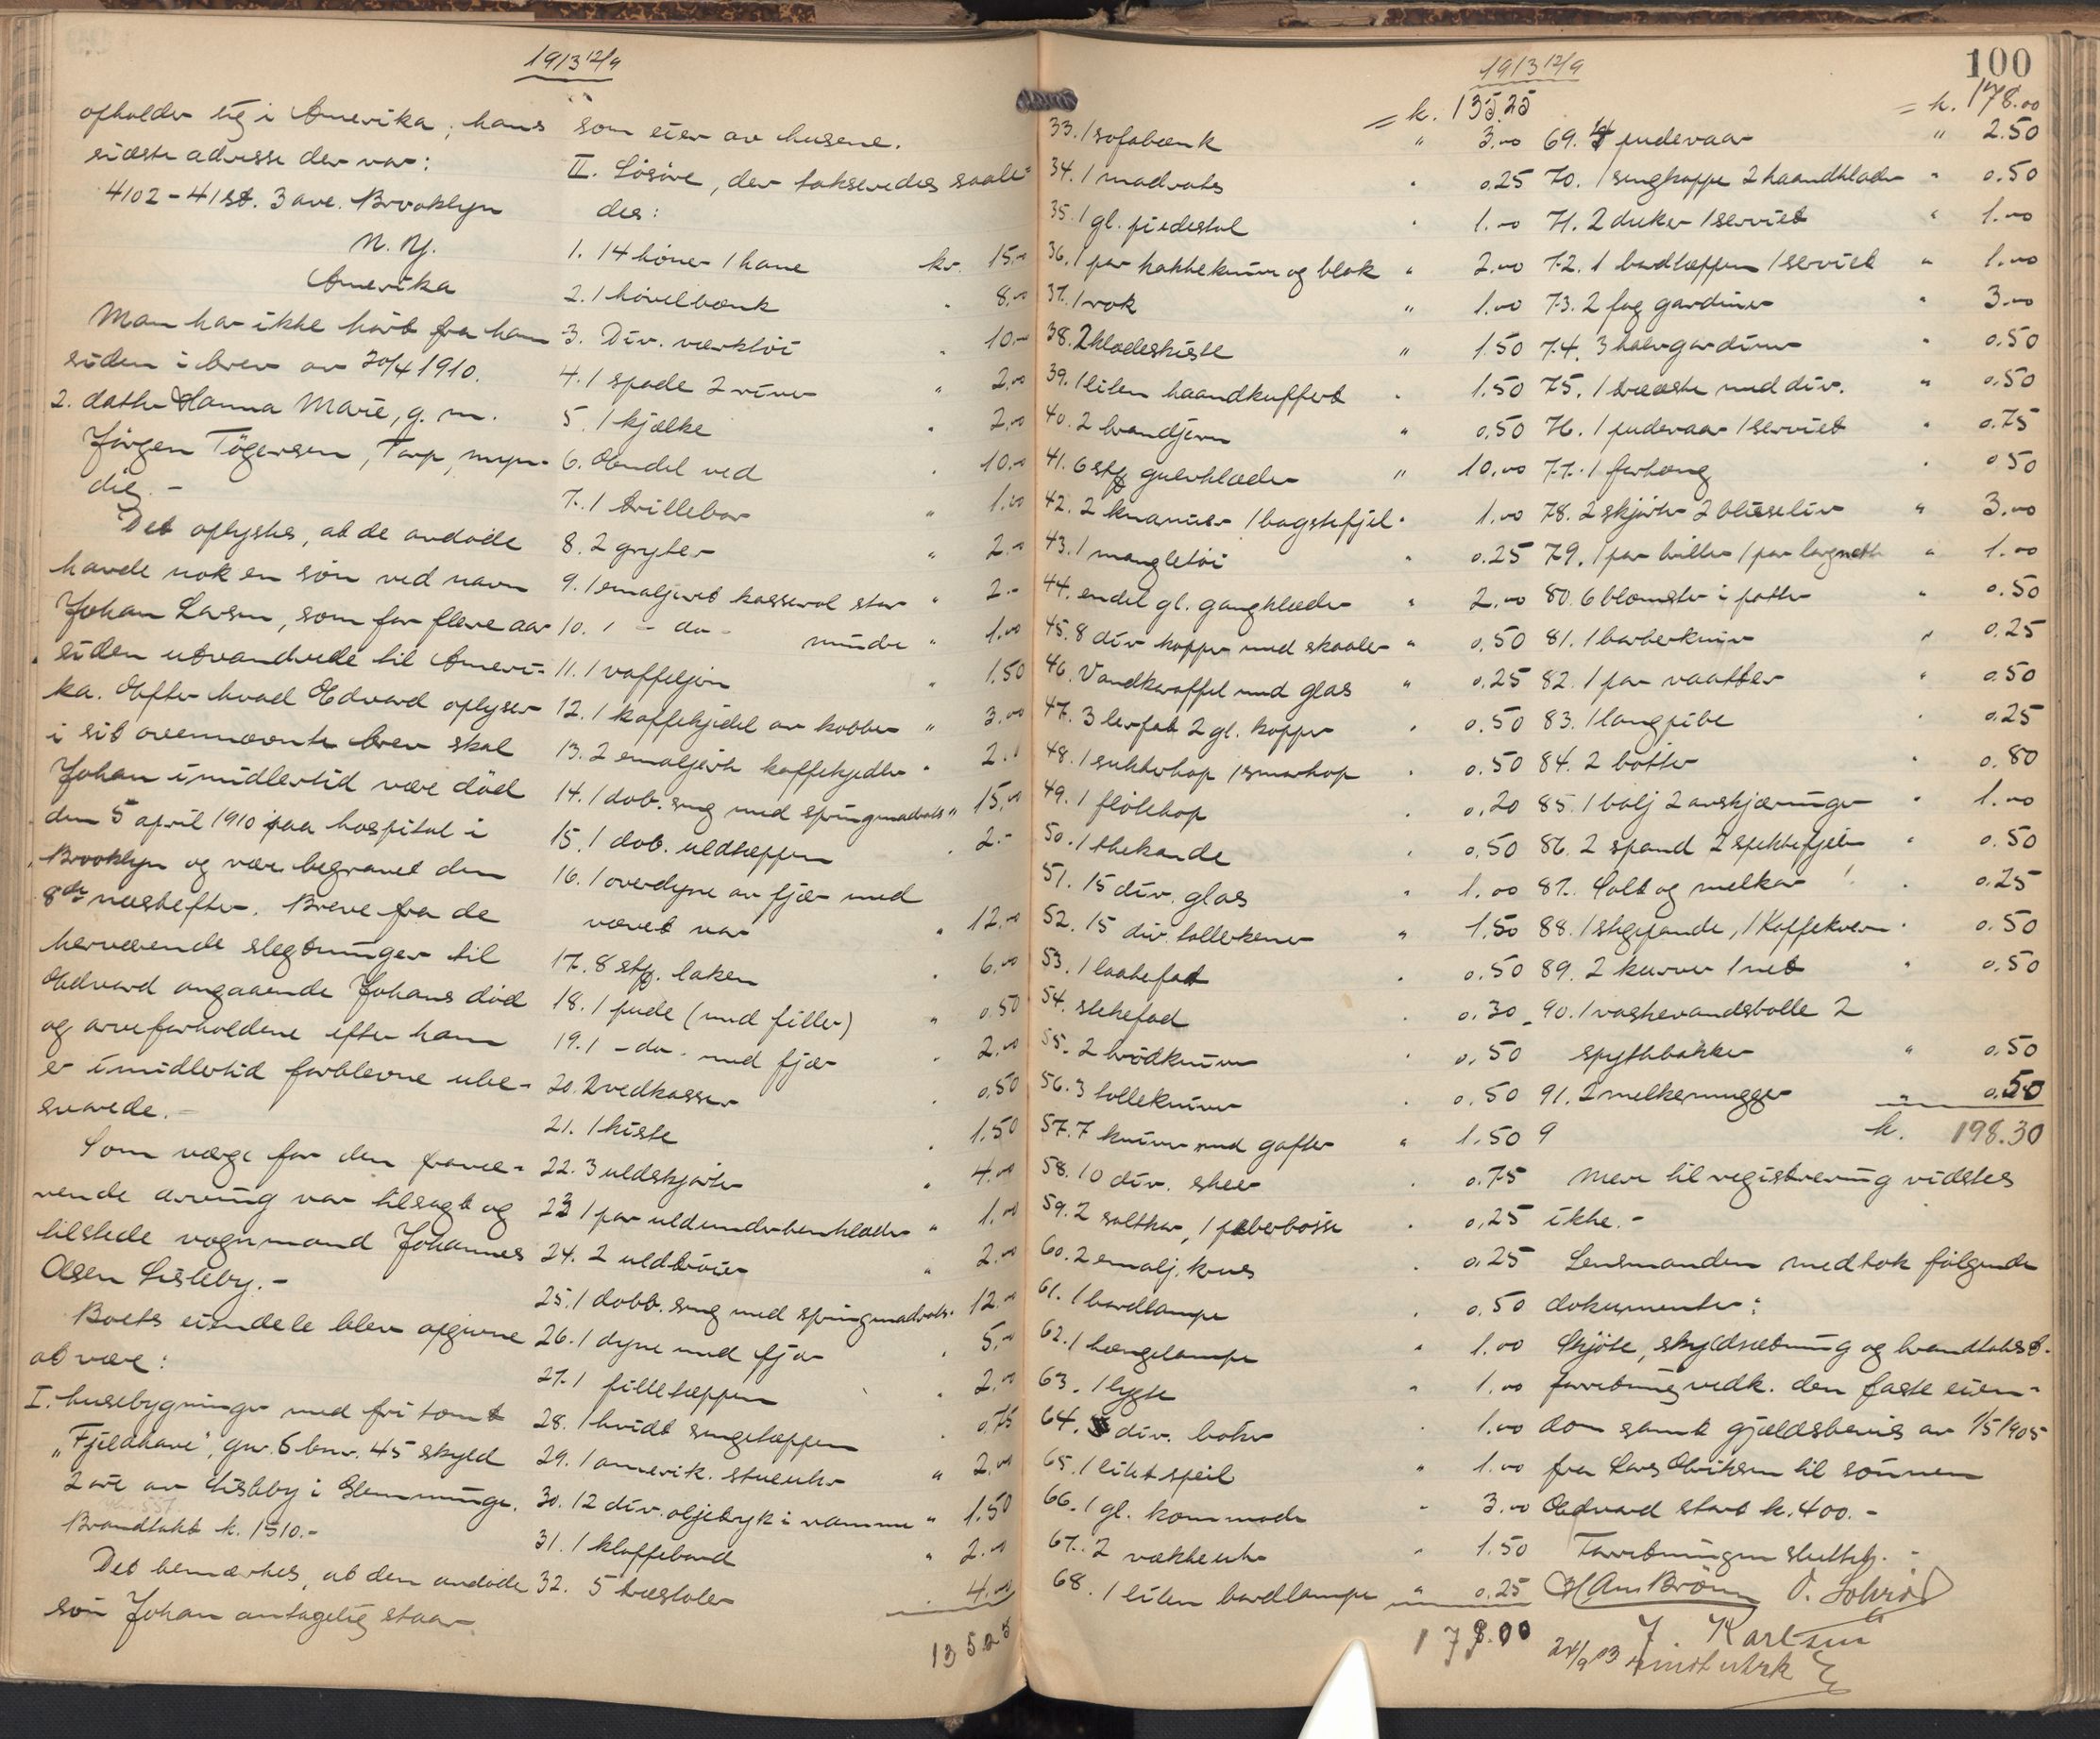 1913 12/9
opholder sig i Amerika; hans
sidste adresse der var:
4102 - 41 st. 3 ave. Brooklyn
N. Y.
Amerika
Man har ikke hört fra ham
siden i brev av 20/4 1910.
2. datter Hanna Marie, g. m.
Jörgen Tögersen, Torp, myn-
dig. -
Det oplystes, at de avdöde
havde nok en sön ved navn
Johan Larsen, som for flere aar
siden utvandrede til Ameri-
ka. Efter hvad Edvard oplyser
i sit ovennævnte brev skal
Johan imidlertid være död
den 5 april 1910 paa hospital i
Brooklyn og være begravet den
8de næstefter. Breve fra de
herværende slegtninger til
Edvard angaaende Johans död
og arveforholdene efter ham
er imidlertid forblevne ube-
svarede. -
Som værge for den fravæ-
rende arving var tilsagt og
tilstede vognmand Johannes
Olsen Lisleby. -
Boets eiendele blev opgivne
at være:
I. husebygninger med fri tomt
"Fjeldhave", gnr. 6 bnr. 45 skyld
2 öre av Lisleby i Glemminge.
Brandtakt k. 1510.-
Det bemærkes, at den avdöde
sön Johan antagelig staar
som eier av husene.
II. Lösöre, der takseredes saale-
des:
1. 14 höner 1 hane kr. 15.00
2. 1 hövelbænk " 8.00
3. Div. værktöi " 10.00
4. 1 spade 2 river " 2.00
5. 1 kjælke " 2.00
6. Endel ved " 10.00
7. 1 trillebor " 1.00
8. 2 gryter " 2.00
9. 1 emaljeret kasserol stor " 2.-
10. 1 - do - mindre " 1.00
11. 1 vaffeljern " 1.50
12. 1 kaffekjedel av kobber " 3.00
13. 2 emaljerte kaffekjedler " 2.00
14. 1 dob. seng med springmadrats " 15.00
15. 1 dob. uldtæppen " 2.-
16. 1 overdyne av fjær med
vævet var " 12.00
17. 8 stk. laken " 6.00
18. 1 pude (med filler) " 0.50
19. 1 - do - med fjær " 2.00
20. 2 vedkasser " 0.50
21. 1 kiste " 1.50
22. 3 uldskjorter " 4.00
23 1 par uldunderbenklæder " 1.00
24. 2 uldtröier " 2.00
25. 1 dobb. seng med springmadrats " 12.00
26. 1 dyne med fjær " 5.00
27. 1 filletæppen " 2.00
28. 1 hvidt sengetæppen " 0.75
29. 1 amerik. stueuhr " 2.00
30. 12 div. oljetryk i ramme " 1.50
31. 1 klaffebord " 2.00
32. 5 træstoler " 4.00
135.25
1913 12/9
= k. 135.25
33. 1 sofabænk " 3.00
34. 1 madrats " 0.25
35. 1 gl. piedestal " 1.00
36. 1 par hakkekniver og blok " 2.00
37. 1 rok " 1.00
38. 2 klædeskiste " 1.50
39. 1 liten haandkuffert " 1.50
40. 2 brandjern " 0.50
41. 6 stk gulvklæder " 10.00
42. 2 knamier 1 bagstefjel " 1.00
43. 1 mangletöi " 0.25
44. endel gl. gangklæder " 2.00
45. 8 div kopper med skaaler " 0.50
46. Vandkaraffel med glas " 0.25
47. 3 lerfat 2 gl. kopper " 0.50
48. 1 sukkerkop 1 smörkop " 0.50
49. 1 flötekop " 0.20
50. 1 thekande " 0.50
51. 15 div. glas " 1.00
52. 15 div. tallerkener " 1.50
53. 1 laakefad " 0.50
54. stekefad " 0.30
55. 2 brödkniver " 0.50
56. 3 tolleknive " 0.50
57. 7 kniver med gafler " 1.50
58. 10 div. skeer " 0.75
59. 2 saltkar, 1 peberbösse " 0.25
60. 2 emalj. krus " 0.25
61. 1 bordlampe " 0.50
62. 1 hængelampe " 1.00
63. 1 lygte " 1.00
64. div. böker " 1.00
65. 1 litet speil " 1.00
66. 1 gl. kommode " 3.00
67. 2 vækkeuhr " 1.50
68. 1 liten bordlampe " 0.25
178.00
100
= k. 178.00
69. 4 pudevaar " 2.50
70. 1 sengkappe 2 haandklæder " 0.50
71. 2 duker 1 serviet " 1.00
72. 1 bordtæppen 1 serviet " 1.00
73. 2 fag gardiner " 3.00
74. 3 halvgardiner " 0.50
75. 1 trææske med div. " 0.50
76. 1 pudevaar 1 serviet " 0.75
77. 1 forhæng " 0.50
78. 2 skjörter 2 bluseliv " 3.00
79. 1 par briller 1 par lorgnett " 1.00
80. 6 blomster i potter " 0.50
81. 1 barberkniv " 0.25
82. 1 par vaatter " 0.50
83. 1 langpibe " 0.25
84. 2 bötter " 0.80
85. 1 balj 2 avskjæringer " 1.00
86. 2 spand 2 spekkefjeler " 0.50
87. Salt og melkar " 0.25
88. 1 stegepande, 1 Kaffekvern " 0.50
89. 2 kurver 1 net " 0.50
90. 1 vaskevandsbolle 2
spytbakker " 0.50
91. 2 melkemugger " 0.50
9 k. 198.30
Mere til registrering vidstes
ikke. -
Lensmanden medtok fölgende
dokumenter:
Skjöte, skyldsætning og brandtakst-
forretning vedk. den faste eien-
dom samt gjældsbevis av 1/5 1905
fra Lars Eriksen til sönnen
Edvard stort k. 400. -
Forretningen sluttet. -
H Ans Brönn O. Solröd
J. Karlsen
24/9 13